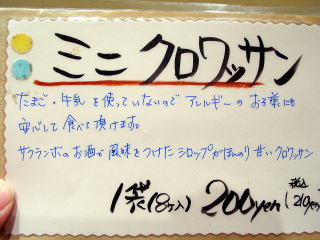 ミニ クロワッサン
たまご・牛乳 を使っていないので アレルギーの お子様にも
安心して 食べて頂けます。
サクランボのお酒で 風味をつけた シロップが ほんのり 甘い クロワッサン
1袋(8ヶ入) 200yen (税込 210yen)